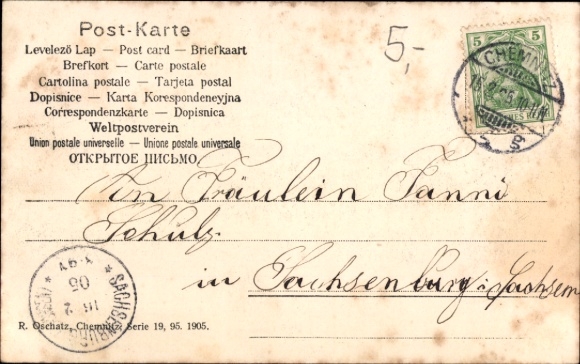 Post-Karte
Levelező Lap — Post card — Briefkaart
Brefkort — Carte postale
Cartolina postale — Tarjeta postal
Dopisnice — Karta Korespondeneyjna
Correspondenzkarte — Dopisnica
Weltpostverein
Union postale universelle — Unione postale universale
ОТКРЫТОЕ ПИСЬМО.
5,-
5 5
CHEMNITZ
An Fräulein Fanni
Schulz.
in Sachsenburg i. Sachsen
SACHSENBURG
16 2
05
R. Oschatz, Chemnitz, Serie 19, 95. 1905.